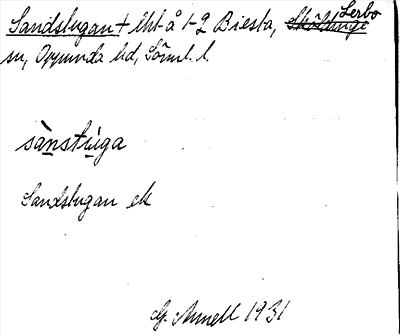 Sandstugan † lht å 1-2 Biesta, ~~Sköldinge~~ Lerbo
sn, Oppunda hd, Söml. l.
sànstúga
Sandstugan ek
G. Annell 1931